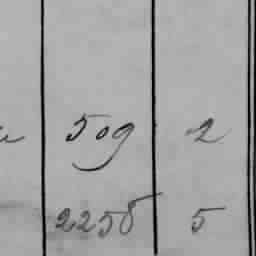 509 2
2258 5